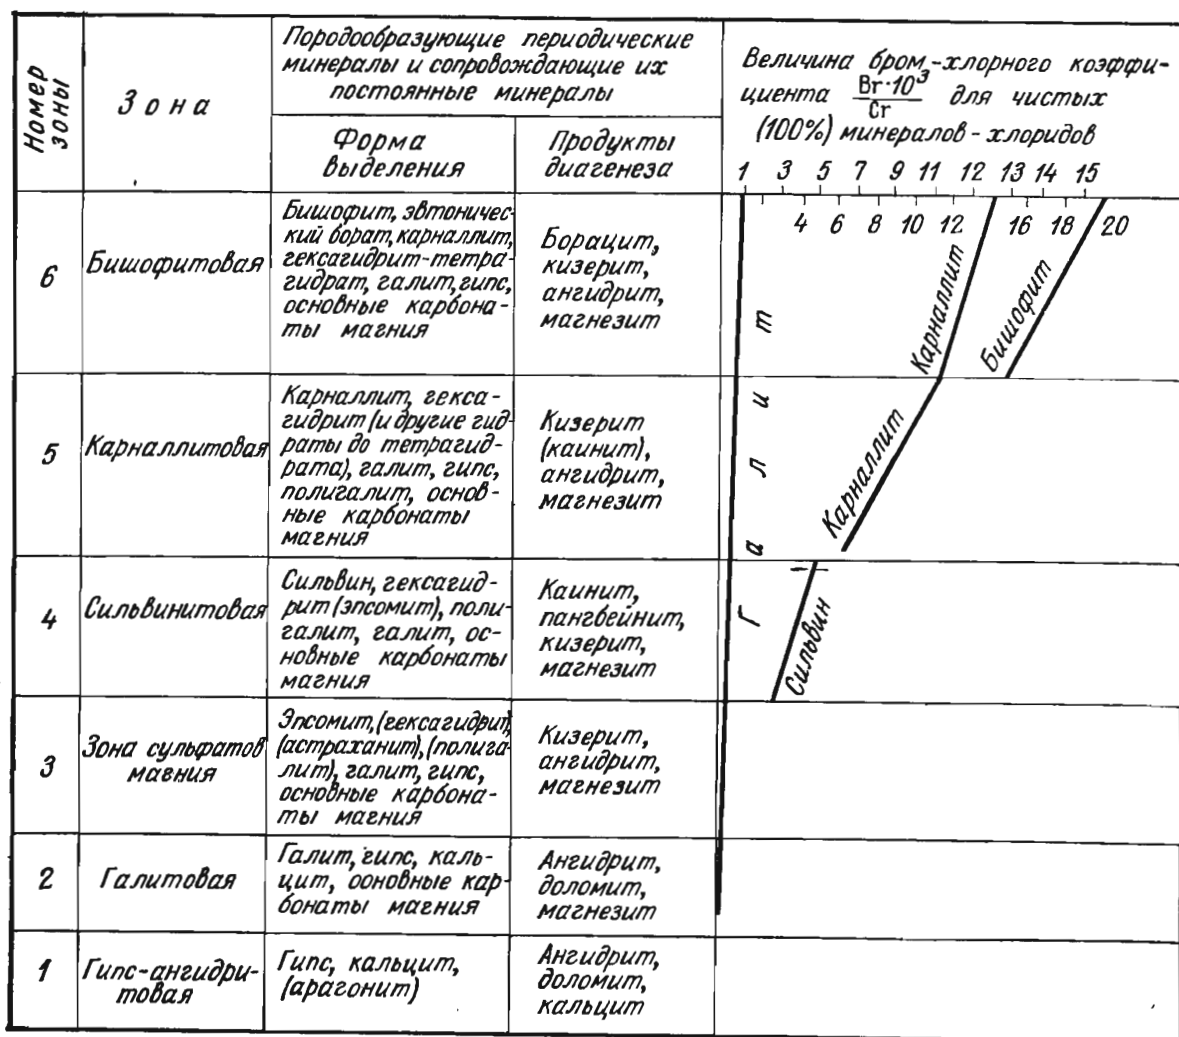 Номер
зоны
Зона
Породообразующие периодические
минералы и сопровождающие их
постоянные минералы
Форма
выделения
Продукты
диагенеза
Величина бром-хлорного коэффи-
циента Br·10³/Cr для чистых
(100%) минералов-хлоридов
1 3 5 7 9 11 12 13 14 15
4 6 8 10 12 16 18 20
6
Бишофитовая
Бишофит, эвтоничес-
кий борат, карналлит,
гексагидрит-тетра-
гидрат, галит, гипс,
основные карбона-
ты магния
Борацит,
кизерит,
ангидрит,
магнезит
Карналлит
Бишофит
5
Карналлитовая
Карналлит, гекса-
гидрит (и другие гид-
раты до тетрагид-
рата), галит, гипс,
полигалит, основ-
ные карбонаты
магния
Кизерит
(каинит),
ангидрит,
магнезит
Карналлит
Галит
4
Сильвинитовая
Сильвин, гексагид-
рит (эпсомит), поли-
галит, галит, ос-
новные карбонаты
магния
Каинит,
пангбейнит,
кизерит,
магнезит
Сильвин
3
Зона сульфатов
магния
Эпсомит, (гексагидрит,
(астраханит), (полига-
лит), галит, гипс,
основные карбона-
ты магния
Кизерит,
ангидрит,
магнезит
2
Галитовая
Галит, гипс, каль-
цит, ооновные кар-
бонаты магния
Ангидрит,
доломит,
магнезит
1
Гипс-ангидри-
товая
Гипс, кальцит,
(арагонит)
Ангидрит,
доломит,
кальцит